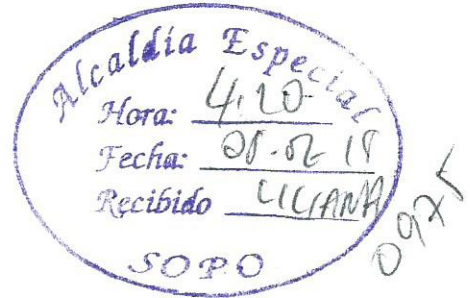 Alcaldía Especial
Hora: 4:20
Fecha:
Recibido LILIANA
SOPO